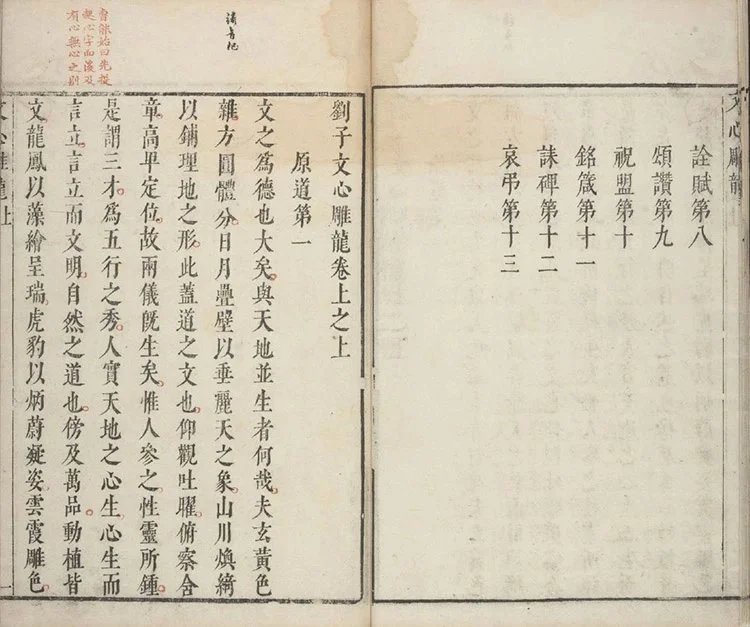 文心雕龍
詮賦第八
頌讚第九
祝盟第十
銘箴第十一
誄碑第十二
哀弔第十三
劉子文心雕龍卷上之上
原道第一
文之爲德也大矣與天地並生者何哉夫玄黃色
雜方圓體分日月疊璧以垂麗天之象山川煥綺
以鋪理地之形此蓋道之文也仰觀吐曜俯察含
章高卑定位故兩儀旣生矣惟人參之性靈所鍾
是謂三才爲五行之秀人實天地之心生心生而
言立言立而文明自然之道也傍及萬品動植皆
文龍鳳以藻繪呈瑞虎豹以炳蔚凝姿雲霞雕色
綺音
曹能始曰先提
起心字而後及
有心無心之別
文心雕龍上
一